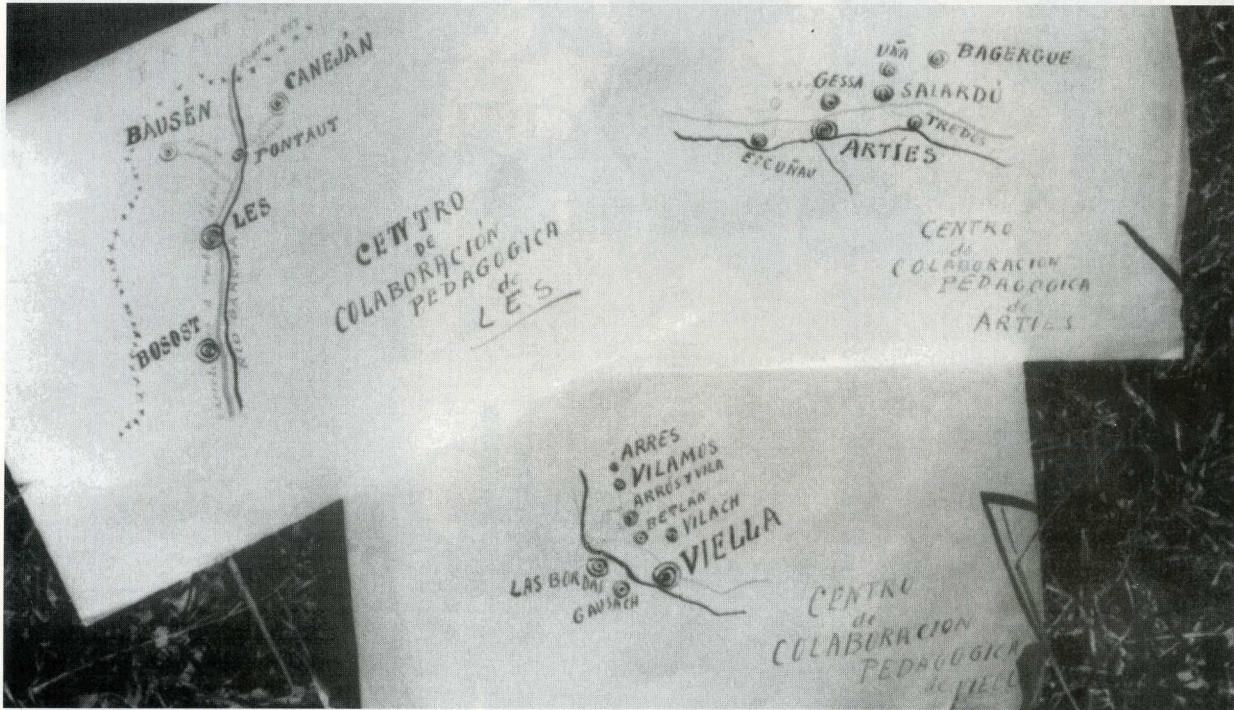 FRAN
CANEJÁN
BAUSÉN
PONTAUT
LES
RIO GARONA
BOSOST
CENTRO
DE
COLABORACIÓN
PEDAGOGICA
de
LES
UÑA
BAGERGUE
GESSA
SALARDÚ
TREDOS
ARTÍES
ESCUÑAU
CENTRO
de
COLABORACION
PEDAGOGICA
de
ARTIES
ARRES
VILAMOS
ARRÓS Y VILA
BETLAN
VILACH
VIELLA
LAS BORDAS
GAUSACH
CENTRO
de
COLABORACION
PEDAGOGICA
de VIELL